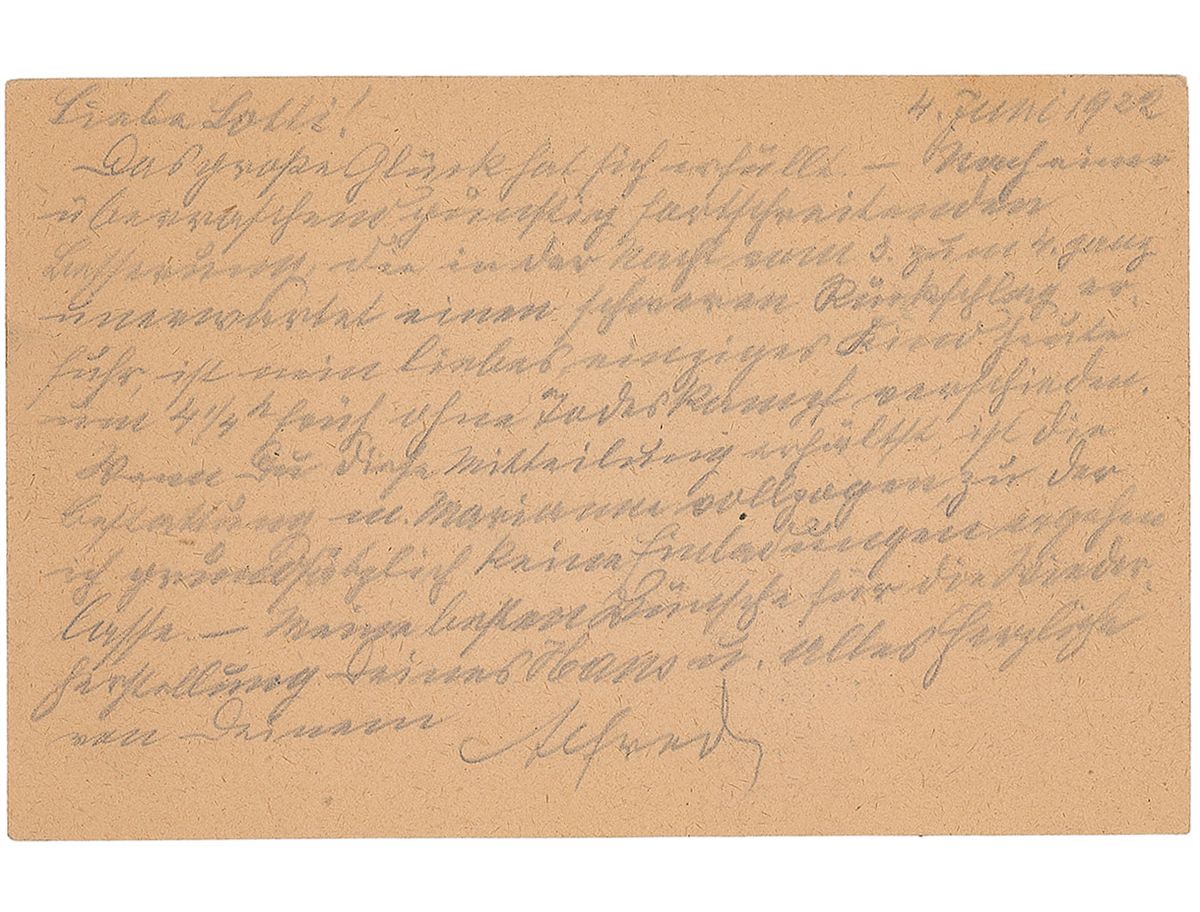 Liebe Lotti! 4. Juni 1922
Das große Glück hat sich erfüllt. – Nach einer
überraschend günstig fortschreitenden
Besserung, die in der Nacht vom 3. zum 4. ganz
unerwartet einen schweren Rückschlag er-
fuhr, ist mein liebes, einziges Kind heute
um 4 1/2 h früh ohne Todeskampf verschieden.
Wenn Du diese Mitteilung erhältst, ist die
Bestattung in Marianne vollzogen, zu der
ich grundsätzlich keine Einladungen ergehen
lasse. – Meine besten Wünsche für die Wieder-
herstellung Deines Hans u. alles Herzliche
von Deinem Alfred